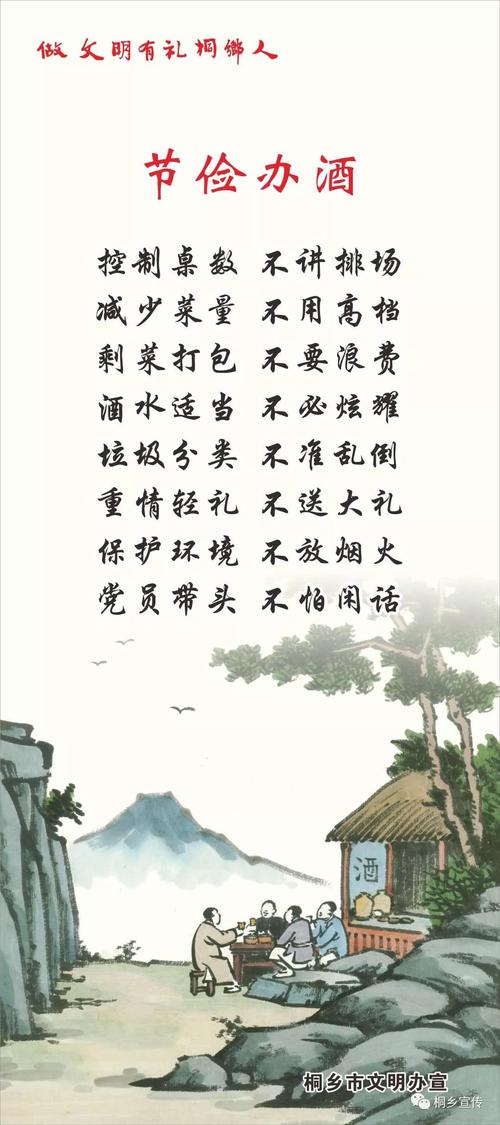 做文明有礼桐鄉人
节俭办酒
控制桌数 不讲排场
减少菜量 不用高档
剩菜打包 不要浪费
酒水适当 不必炫耀
垃圾分类 不准乱倒
重情轻礼 不送大礼
保护环境 不放烟火
党员带头 不怕闲话
酒
桐乡市文明办宣
桐乡宣传